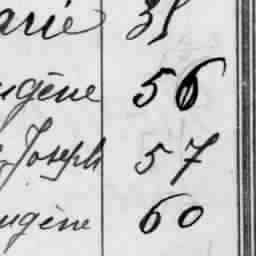 arie 35
ugène 56
Joseph 57
ugène 60